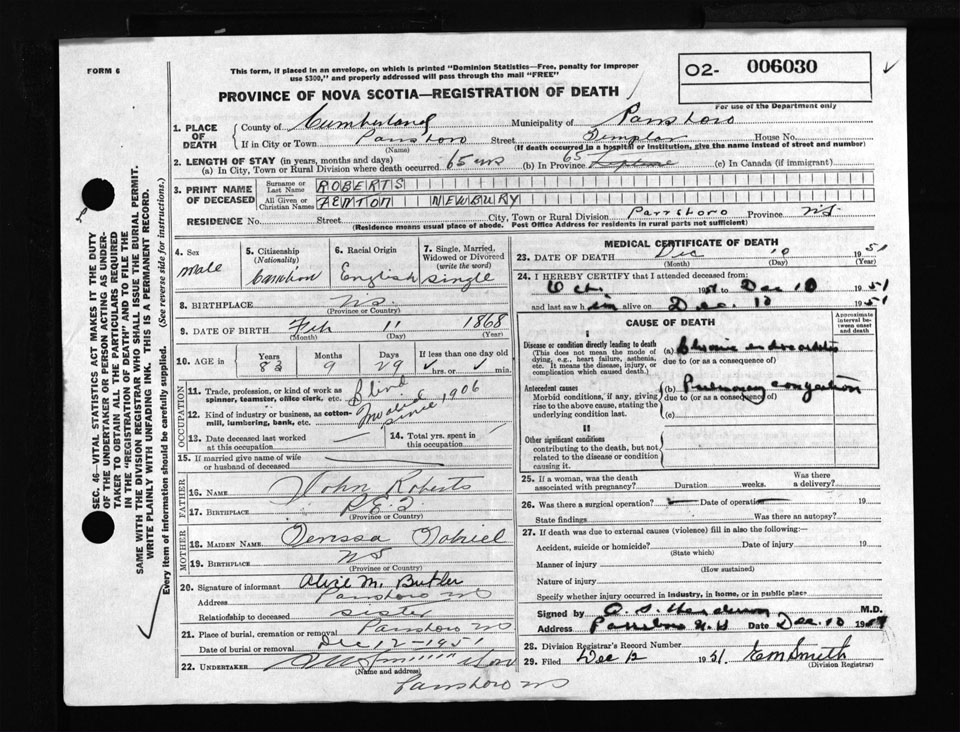 FORM 6
This form, if placed in an envelope, on which is printed "Dominion Statistics—Free, penalty for improper
use $300," and properly addressed will pass through the mail "FREE"
O2- 006030
For use of the Department only
PROVINCE OF NOVA SCOTIA—REGISTRATION OF DEATH
1. PLACE OF DEATH
County of Cumberland Municipality of Parrsboro
If in City or Town Parrsboro Street House No.
(Name) (If death occurred in a hospital or institution, give the name instead of street and number)
2. LENGTH OF STAY (in years, months and days)
(a) In City, Town or Rural Division where death occurred 65 yrs (b) In Province 65 (c) In Canada (if immigrant)
3. PRINT NAME OF DECEASED
Surname or Last Name ROBERTS
All Given or Christian Names FENTON NEWBURY
RESIDENCE No. Street City, Town or Rural Division Parrsboro Province NS
(Residence means usual place of abode. Post Office Address for residents in rural parts not sufficient)
4. Sex
male
5. Citizenship
(Nationality)
Canadian
6. Racial Origin
English
7. Single, Married,
Widowed or Divorced
(write the word)
single
8. BIRTHPLACE NS.
(Province or Country)
9. DATE OF BIRTH Feb 11 1868
(Month) (Day) (Year)
10. AGE in Years Months Days If less than one day old
83 9 29 hrs. or min.
OCCUPATION
11. Trade, profession, or kind of work as
spinner, teamster, office clerk, etc. Blind
12. Kind of industry or business, as cotton-
mill, lumbering, bank, etc. Invalid since 1906
13. Date deceased last worked
at this occupation
14. Total yrs. spent in
this occupation
15. If married give name of wife
or husband of deceased
FATHER
16. NAME John Roberts
17. BIRTHPLACE P.E.I
(Province or Country)
MOTHER
18. MAIDEN NAME
19. BIRTHPLACE NS
(Province or Country)
20. Signature of informant Alice M. Butler
Address Parrsboro NS
Relationship to deceased sister
21. Place of burial, cremation or removal Parrsboro NS
Date of burial or removal Dec 12-1951
22. UNDERTAKER
(Name and address)
Parrsboro NS
MEDICAL CERTIFICATE OF DEATH
23. DATE OF DEATH Dec 10 1951
(Month) (Day)
24. I HEREBY CERTIFY that I attended deceased from:
Oct. 1951 to Dec 10 1951
and last saw him alive on Dec. 10 1951
CAUSE OF DEATH
Approximate interval between onset and death
Disease or condition directly leading to death
(This does not mean the mode of
dying, e.g., heart failure, asthenia,
etc. It means the disease, injury, or
complication which caused death.)
(a) Chronic endocarditis
due to (or as a consequence of)
Antecedent causes
Morbid conditions, if any, giving
rise to the above cause, stating the
underlying condition last.
(b) Pulmonary congestion
due to (or as a consequence of)
(c)
II
Other significant conditions
contributing to the death, but not
related to the disease or condition
causing it.
25. If a woman, was the death
associated with pregnancy? Duration weeks. Was there
a delivery?
26. Was there a surgical operation? Date of operation 19
State findings Was there an autopsy?
27. If death was due to external causes (violence) fill in also the following:—
Accident, suicide or homicide? Date of injury 19
(State which)
Manner of injury
(How sustained)
Nature of injury
Specify whether injury occurred in industry, in home, or in public place
Signed by M.D.
Address Parrsboro N.S Date Dec. 10 1951
28. Division Registrar's Record Number
29. Filed Dec 12 1951 EM Smith
(Division Registrar)
SEC. 46—VITAL STATISTICS ACT MAKES IT THE DUTY
OF THE UNDERTAKER OR PERSON ACTING AS UNDER-
TAKER TO OBTAIN ALL THE PARTICULARS REQUIRED
IN THE "REGISTRATION OF DEATH" AND TO FILE THE
SAME WITH THE DIVISION REGISTRAR WHO SHALL ISSUE THE BURIAL PERMIT.
WRITE PLAINLY WITH UNFADING INK. THIS IS A PERMANENT RECORD.
Every item of information should be carefully supplied. (See reverse side for instructions.)